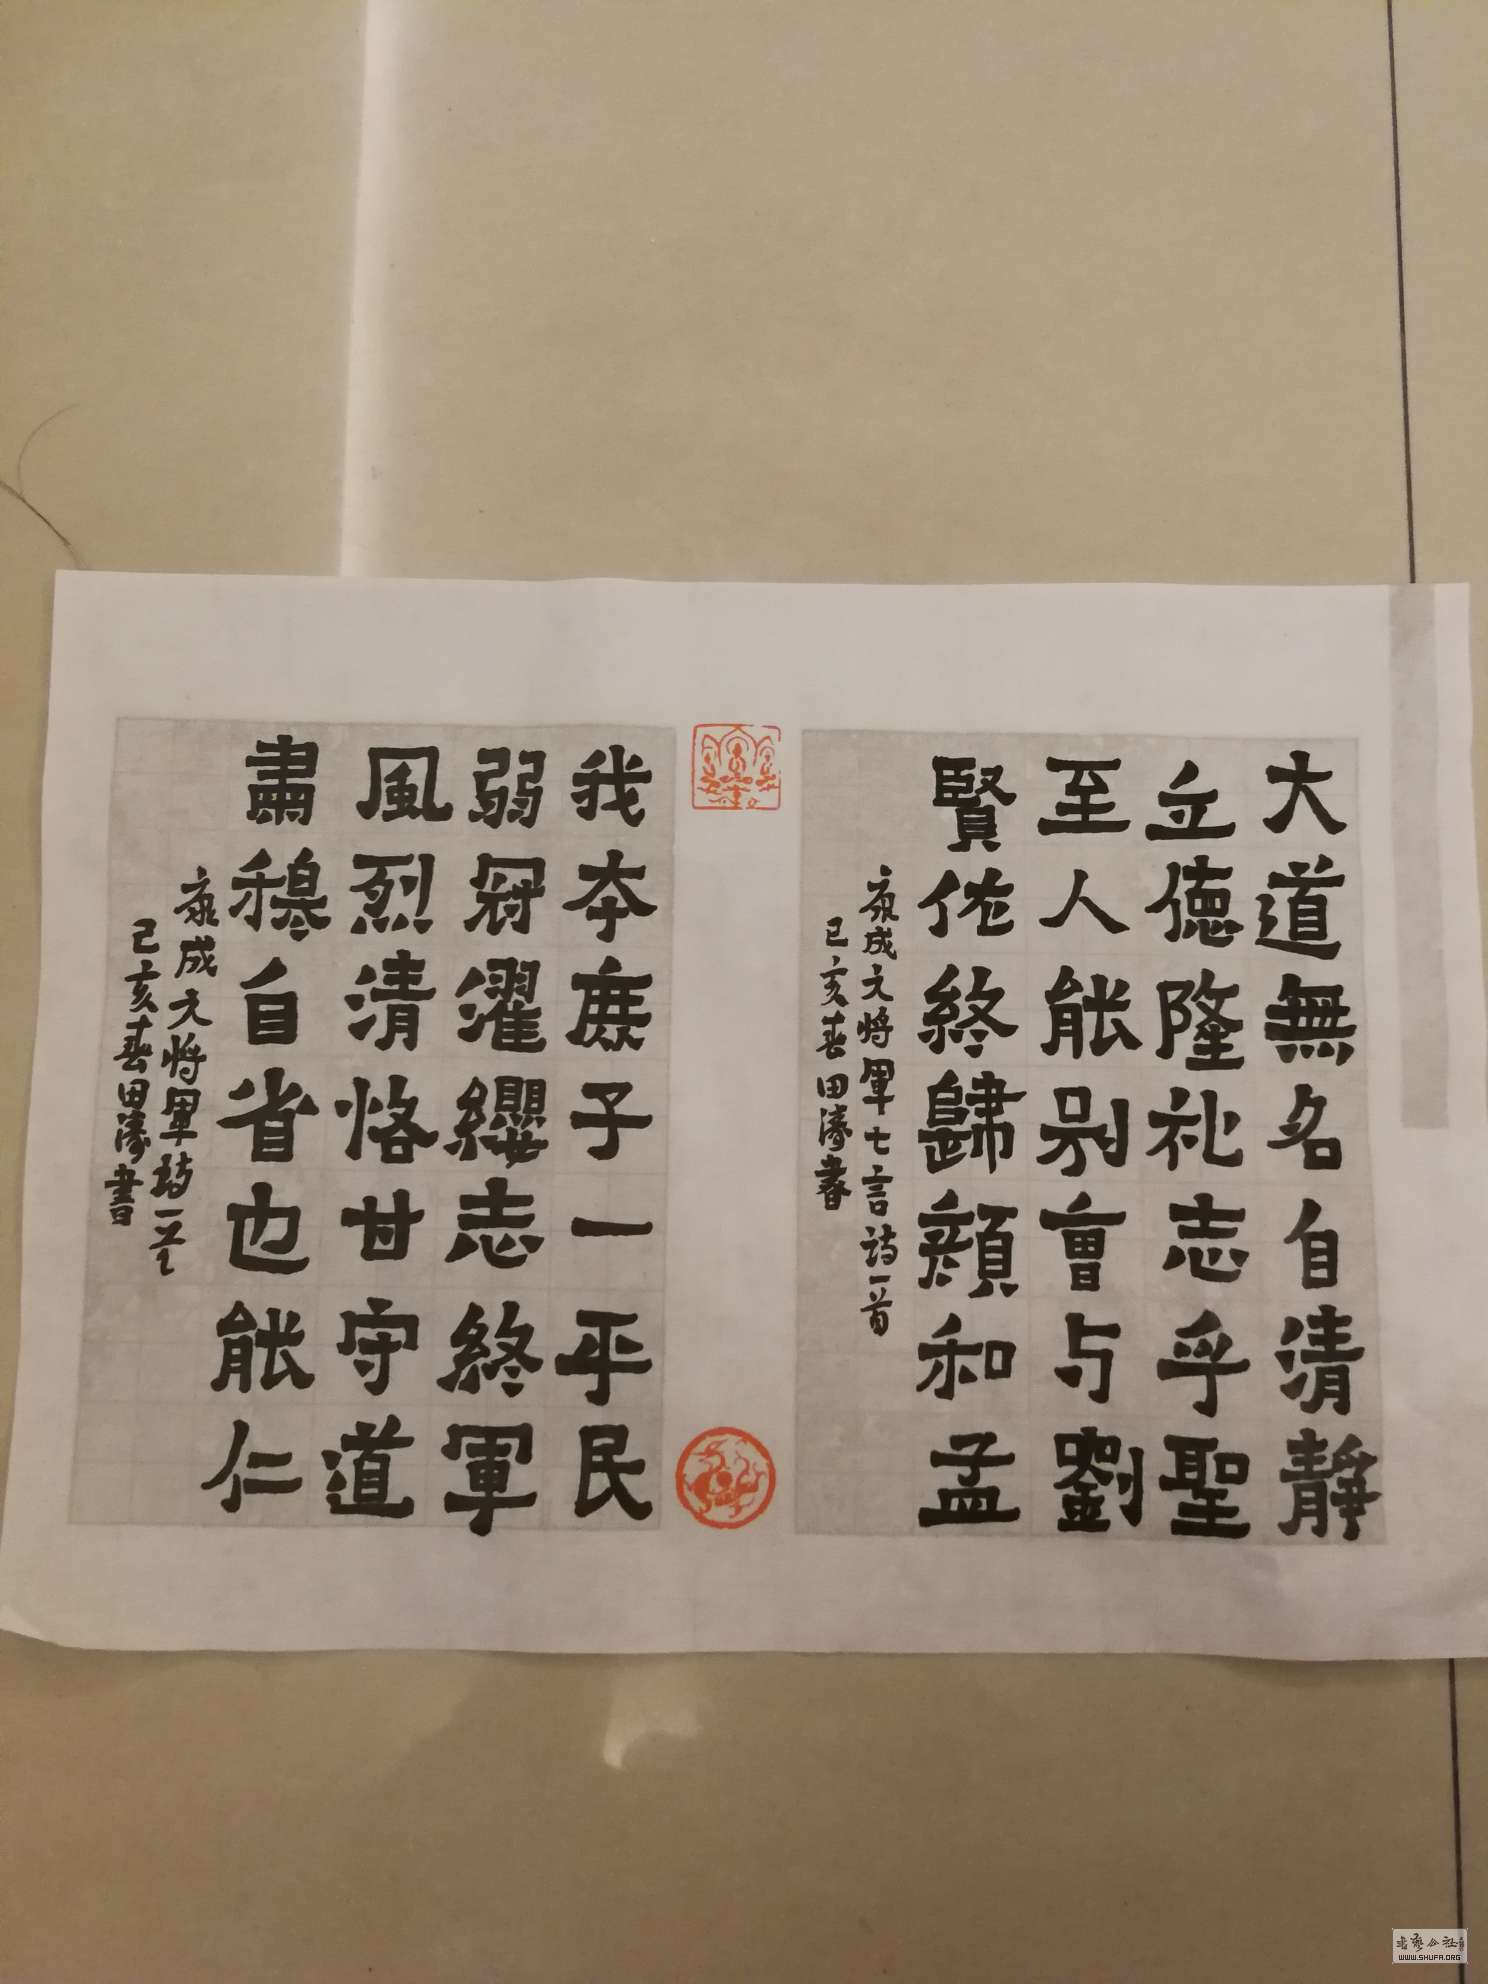 大道無名自清靜
立德隆礼志乎聖
至人能别曹与劉
賢佐終歸顔和孟
康成文將軍七言詩一首
己亥春田濤書
我本庶子一平民
弱冠濯纓志終軍
風烈清恪甘守道
肅穆自省也能仁
康成文將軍詩一首
己亥春田濤書
WWW.SHUFA.ORG